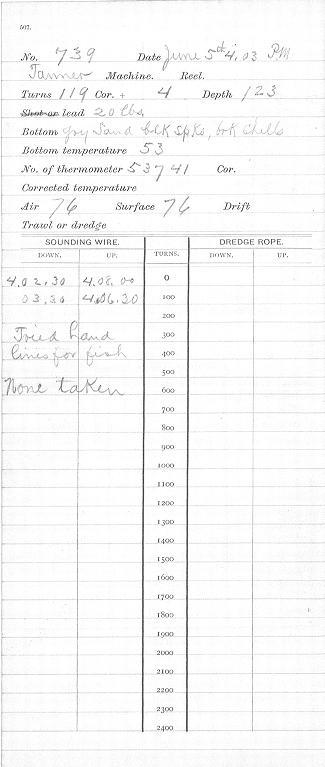 No. 739 Date June 5th 4.03 PM
Tanner Machine. Reel.
Turns 119 Cor. + 4 Depth 123
Shot or lead 20 lbs
Bottom gry Sand blk Spks, brk Shells
Bottom temperature 53
No. of thermometer 53741 Cor.
Corrected temperature
Air 76 Surface 76 Drift
Trawl or dredge
SOUNDING WIRE. TURNS. DREDGE ROPE.
DOWN. UP. DOWN. UP.
4.02.30 4.08.00 0
03.30 4.06.30 100
200
Tried hand 300
lines for fish 400
500
None taken 600
700
800
900
1000
1100
1200
1300
1400
1500
1600
1700
1800
1900
2000
2100
2200
2300
2400